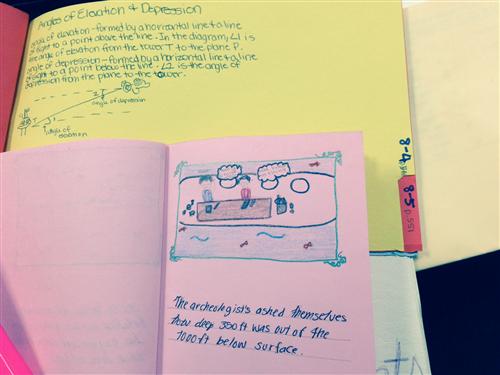 Angles of Elevation & Depression
angle of elevation-formed by a horizontal line + a line
of sight to a point above the line. In the diagram, ∠1 is
the angle of elevation from the tower T to the plane P.
angle of depression-formed by a horizontal line + a line
of sight to a point below the line. ∠2 is the angle of
depression from the plane to the tower.
angle of depression
angle of
elevation
8-4
8-5 p.551
The archeologist's asked themselves
how deep 350ft was out of the
1000ft below surface.